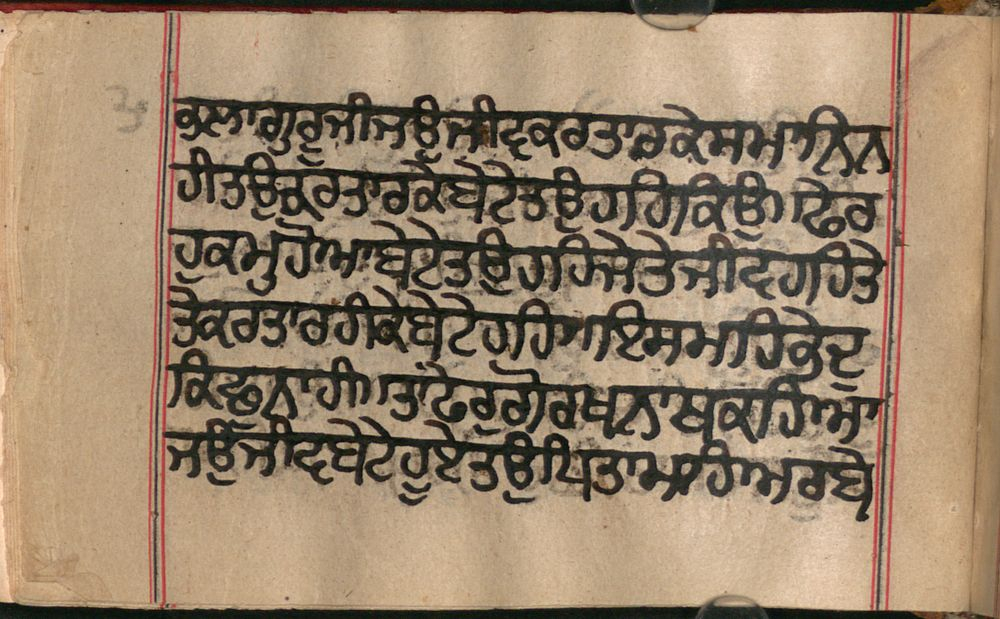 ਕੁਲਾਗੁਰੂਜੀਜਉਜੀਵਕਰਤਾਰਕੇਸਮਾਨਿਨ
ਹੀਤਉਕਰਤਾਰਕੇਬੇਟੇਤਉਹਹਿਕਿਉ।ਫਿਰ
ਹੁਕਮੁਹੋਆਬੇਟੇਤਉਹਹਿਜੇਤੇਜੀਵਹਹਿਤੇ
ਤੇਕਰਤਾਰਹੀਕੇਬੇਟੇਹਹਿ॥ਇਸਮਹਿਕੁਦ
ਕਿਛੁਨਾਹੀ॥ਤਾਂਫੇਰੁਗੋਰਖਨਾਥਕਹਿਆ
ਜਉਜੀਵਬੇਟੇਹੂਏਤਉਪਿਤਾਮਹਿਅਰਬੇ